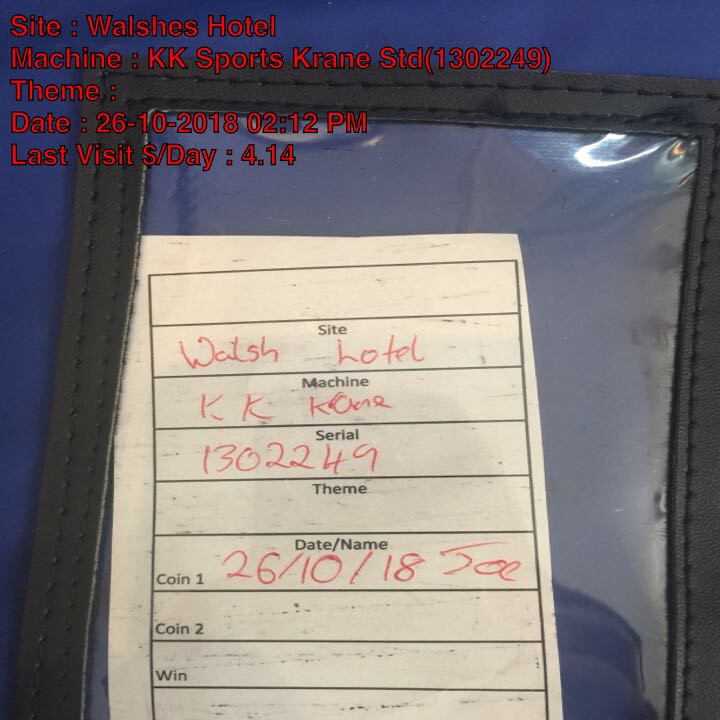 Site : Walshes Hotel
Machine : KK Sports Krane Std(1302249)
Theme :
Date : 26-10-2018 02:12 PM
Last Visit $/Day : 4.14
Site
Walsh hotel
Machine
KK Krane
Serial
1302249
Theme
Date/Name
Coin 1 26/10/18 Joe
Coin 2
Win